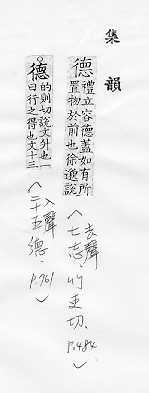 集韻
德
禮立容德蓋如有所
置物於前也徐邈讀
〈去聲
七志.竹吏切.
p.484.〉
德
的則切說文升也一
曰行之得也文十三
〈入聲
二十五德.
p.761〉